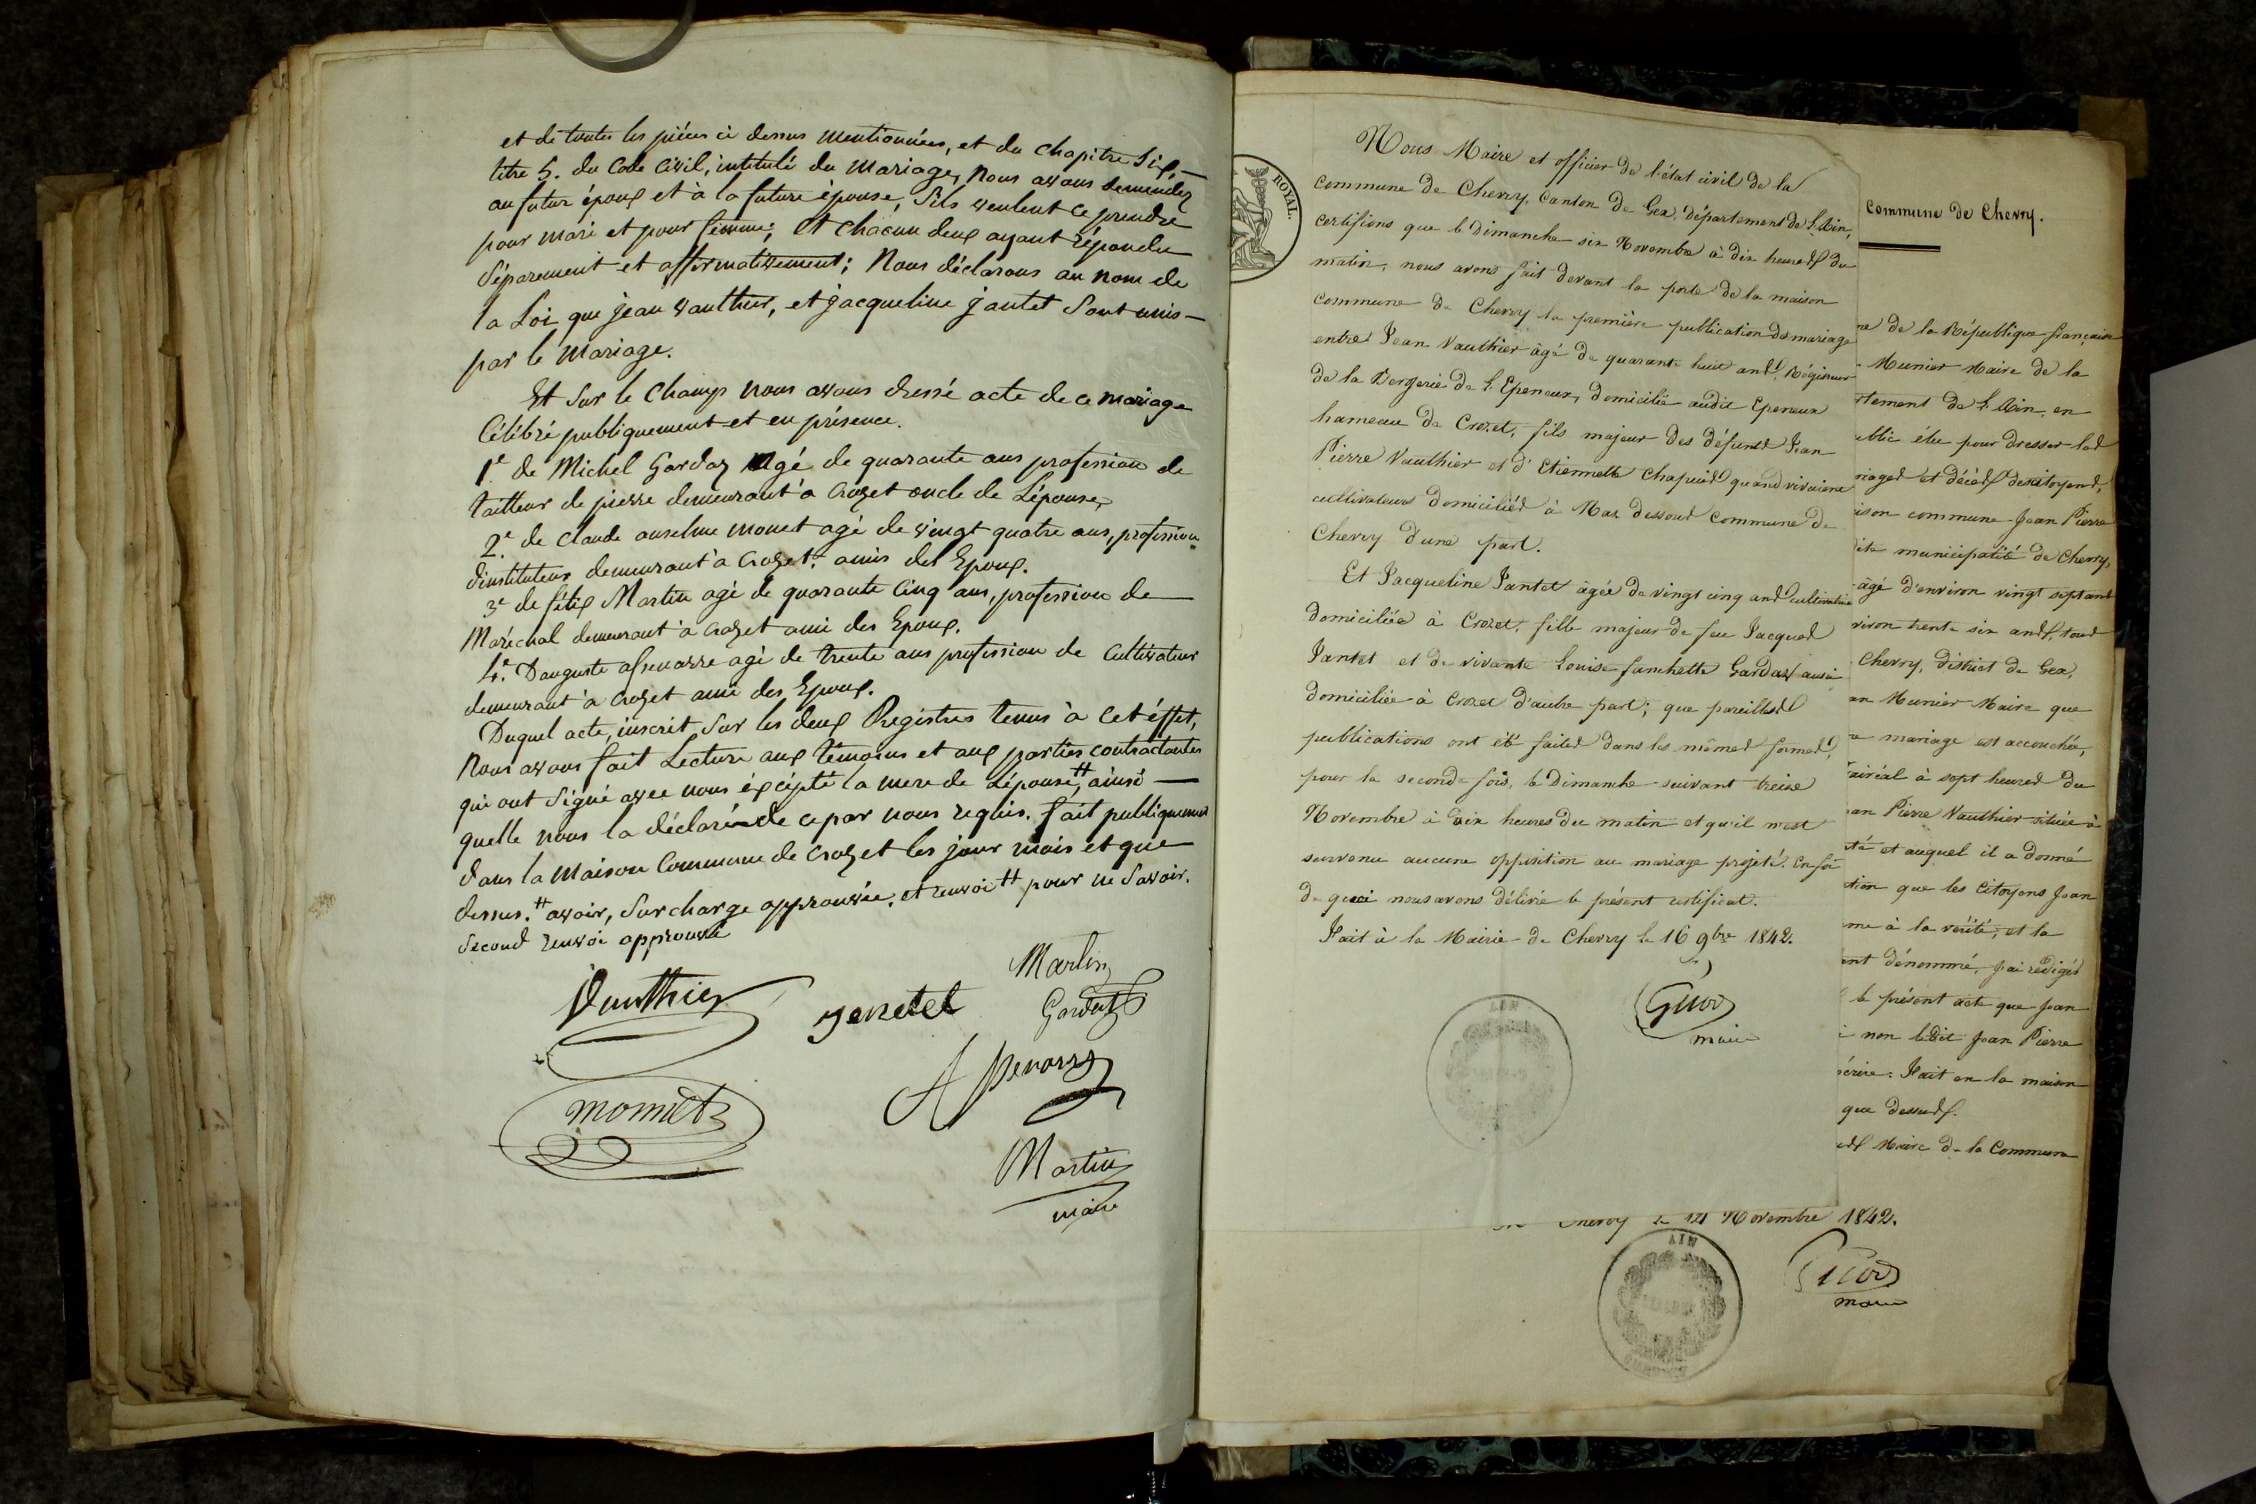 et de toutes les pièces ci dessus mentionnées, et du chapitre six,
titre 5. du Code Civil, intitulé du Mariage, Nous avons demandez
au futur époux et à la future épouse, s'ils veulent ce prendre
pour mari et pour femme; et chacun deux ayant répondu
séparement et affirmativement; Nous déclarons au nom de
la Loi que jean vauthier, et jacqueline jantet sont unis
par le mariage.
Et sur le champ nous avons dressé acte de ce mariage
Célébré publiquement et en présence.
1e. de Michel Gardaz agé de quarante ans profession de
tailleur de pierre demeurant à crozet oncle de Lépouse,
2e. de claude anselme monet agé de vingt quatre ans, profession
dinstituteur demeurant à crozet: amis des Epoux.
3e de félix Martin agé de quarante cinq ans, profession de
Maréchal demeurant à crozet ami des Epoux.
4e. Dauguste apenarre agé de trente ans profession de Cultivateur
demeurant à crozet ami des Epoux.
Duquel acte, inscrit sur les deux Registres tenus à cet éffet,
Nous avons fait Lecture aux témoins et aux parties contractantes
qui ont signé avec nous éxcépté la mere de Lépouse # ainsi
quelle nous la déclaré de ce par nous requis. fait publiquement
dans la Maison Commune de crozet les jour mois et que
dessus. # avoir, surcharge approuvée. et renvoi # pour ne savoir.
second renvoi approuvé
Vauthier
Martin
jenetet
Gardaz
A Penarre
monnet
Martin
maire
ROYAL.
Nous Maire et officier de l'état civil de la
commune de Chevry, Canton de Gex, département de l'Ain,
certifions que le Dimanche six Novembre à dix heures du
matin, nous avons fait devant la porte de la maison
commune de Chevry la première publication de mariage
entre Jean Vauthier âgé de quarante huit ans, Régisseur
de la Bergerie de l'Epeneux, domicilié audit Epeneux
hameau de Crozet, fils majeur des défunts Jean
Pierre Vauthier et d'Etiennette Chapuis quand vivaient
cultivateurs domiciliés à Naz dessous commune de
Chevry d'une part.
Et Jacqueline Jantet âgée de vingt cinq ans cultivatrice
domiciliée à Crozet, fille majeur de feu Jacques
Jantet et de vivante Louise fanchette Gardaz aussi
domiciliée à Crozet d'autre part; que pareilles
publications ont été faites dans les mêmes formes,
pour la seconde fois, le Dimanche suivant treize
Novembre à dix heures du matin et qu'il n'est
survenu aucune opposition au mariage projeté. En foi
de quoi nous avons délivré le présent certificat.
Fait à la Mairie de Chevry le 16 9bre 1842.
maire
AIN
Commune de Chevry.
de la République française
Munier Maire de la
de l'Ain, en
élu pour dresser les
et décès des citoyens,
commune Jean Pierre
municipalité de Chevry,
âgé d'environ vingt sept ans
trente six ans, tous
Chevry, district de Gex,
Munier Maire que
mariage est accouchée,
à sept heures du
Pierre Vauthier située à
et auquel il a donné
que les Citoyens Jean
à la vérité, et la
dénommé, j'ai rédigé
le présent acte que Jean
non ledit Jean Pierre
Fait en la maison
que dessus.
Maire de la Commune
Chevry le 14 Novembre 1842.
AIN
maire